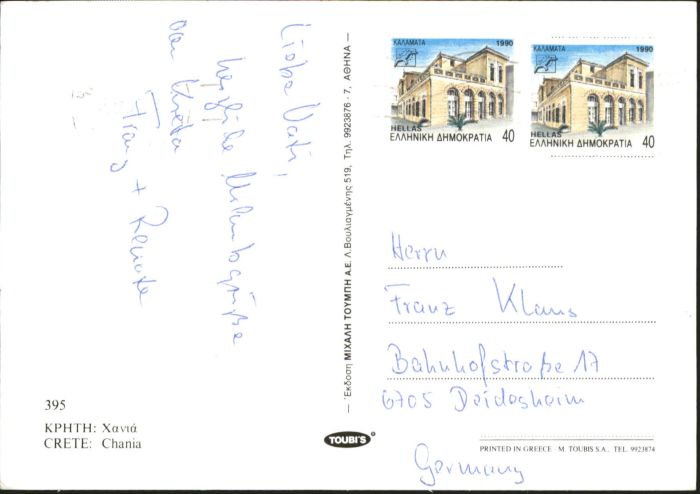 Lieber Vati,
herzliche Urlaubsgrüße
aus Kreta
Franz + Renate
395
ΚΡΗΤΗ: Χανιά
CRETE: Chania
— Ἔκδοση ΜΙΧΑΛΗ ΤΟΥΜΠΗ Α.Ε. Λ. Βουλιαγμένης 519, Τηλ. 9923876 - 7, ΑΘΗΝΑ —
TOUBI'S
ΚΑΛΑΜΑΤΑ 1990
HELLAS
ΕΛΛΗΝΙΚΗ ΔΗΜΟΚΡΑΤΙΑ 40
ΚΑΛΑΜΑΤΑ 1990
HELLAS
ΕΛΛΗΝΙΚΗ ΔΗΜΟΚΡΑΤΙΑ 40
Herrn
Franz Klaus
Bahnhofstraße 17
6705 Deidesheim
Germany
PRINTED IN GREECE - M. TOUBIS S.A., TEL. 9923874